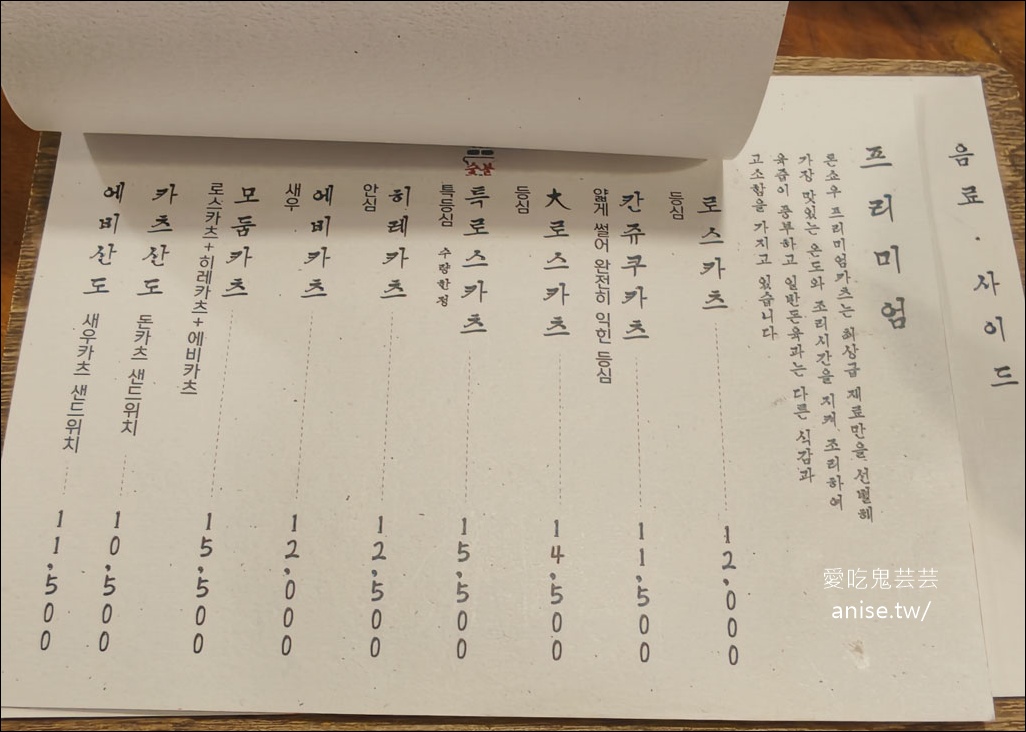 음료·사이드
프리미엄
론쇼우 프리미엄카츠는 최상급 재료만을 선별해
가장 맛있는 온도와 조리시간을 지켜 조리하여
육즙이 풍부하고 일반돈육과는 다른 식감과
고소함을 가지고 있습니다
로스카츠 12,000
등심
칸쥬쿠카츠 11,500
얇게 썰어 완전히 익힌 등심
大로스카츠 14,500
등심
숯불
특로스카츠 15,500
특등심 수량한정
히레카츠 12,500
안심
에비카츠 12,000
새우
모둠카츠 15,500
로스카츠+히레카츠+에비카츠
카츠산도 돈카츠 샌드위치 10,500
에비산도 새우카츠 샌드위치 11,500
愛吃鬼芸芸
anise.tw/